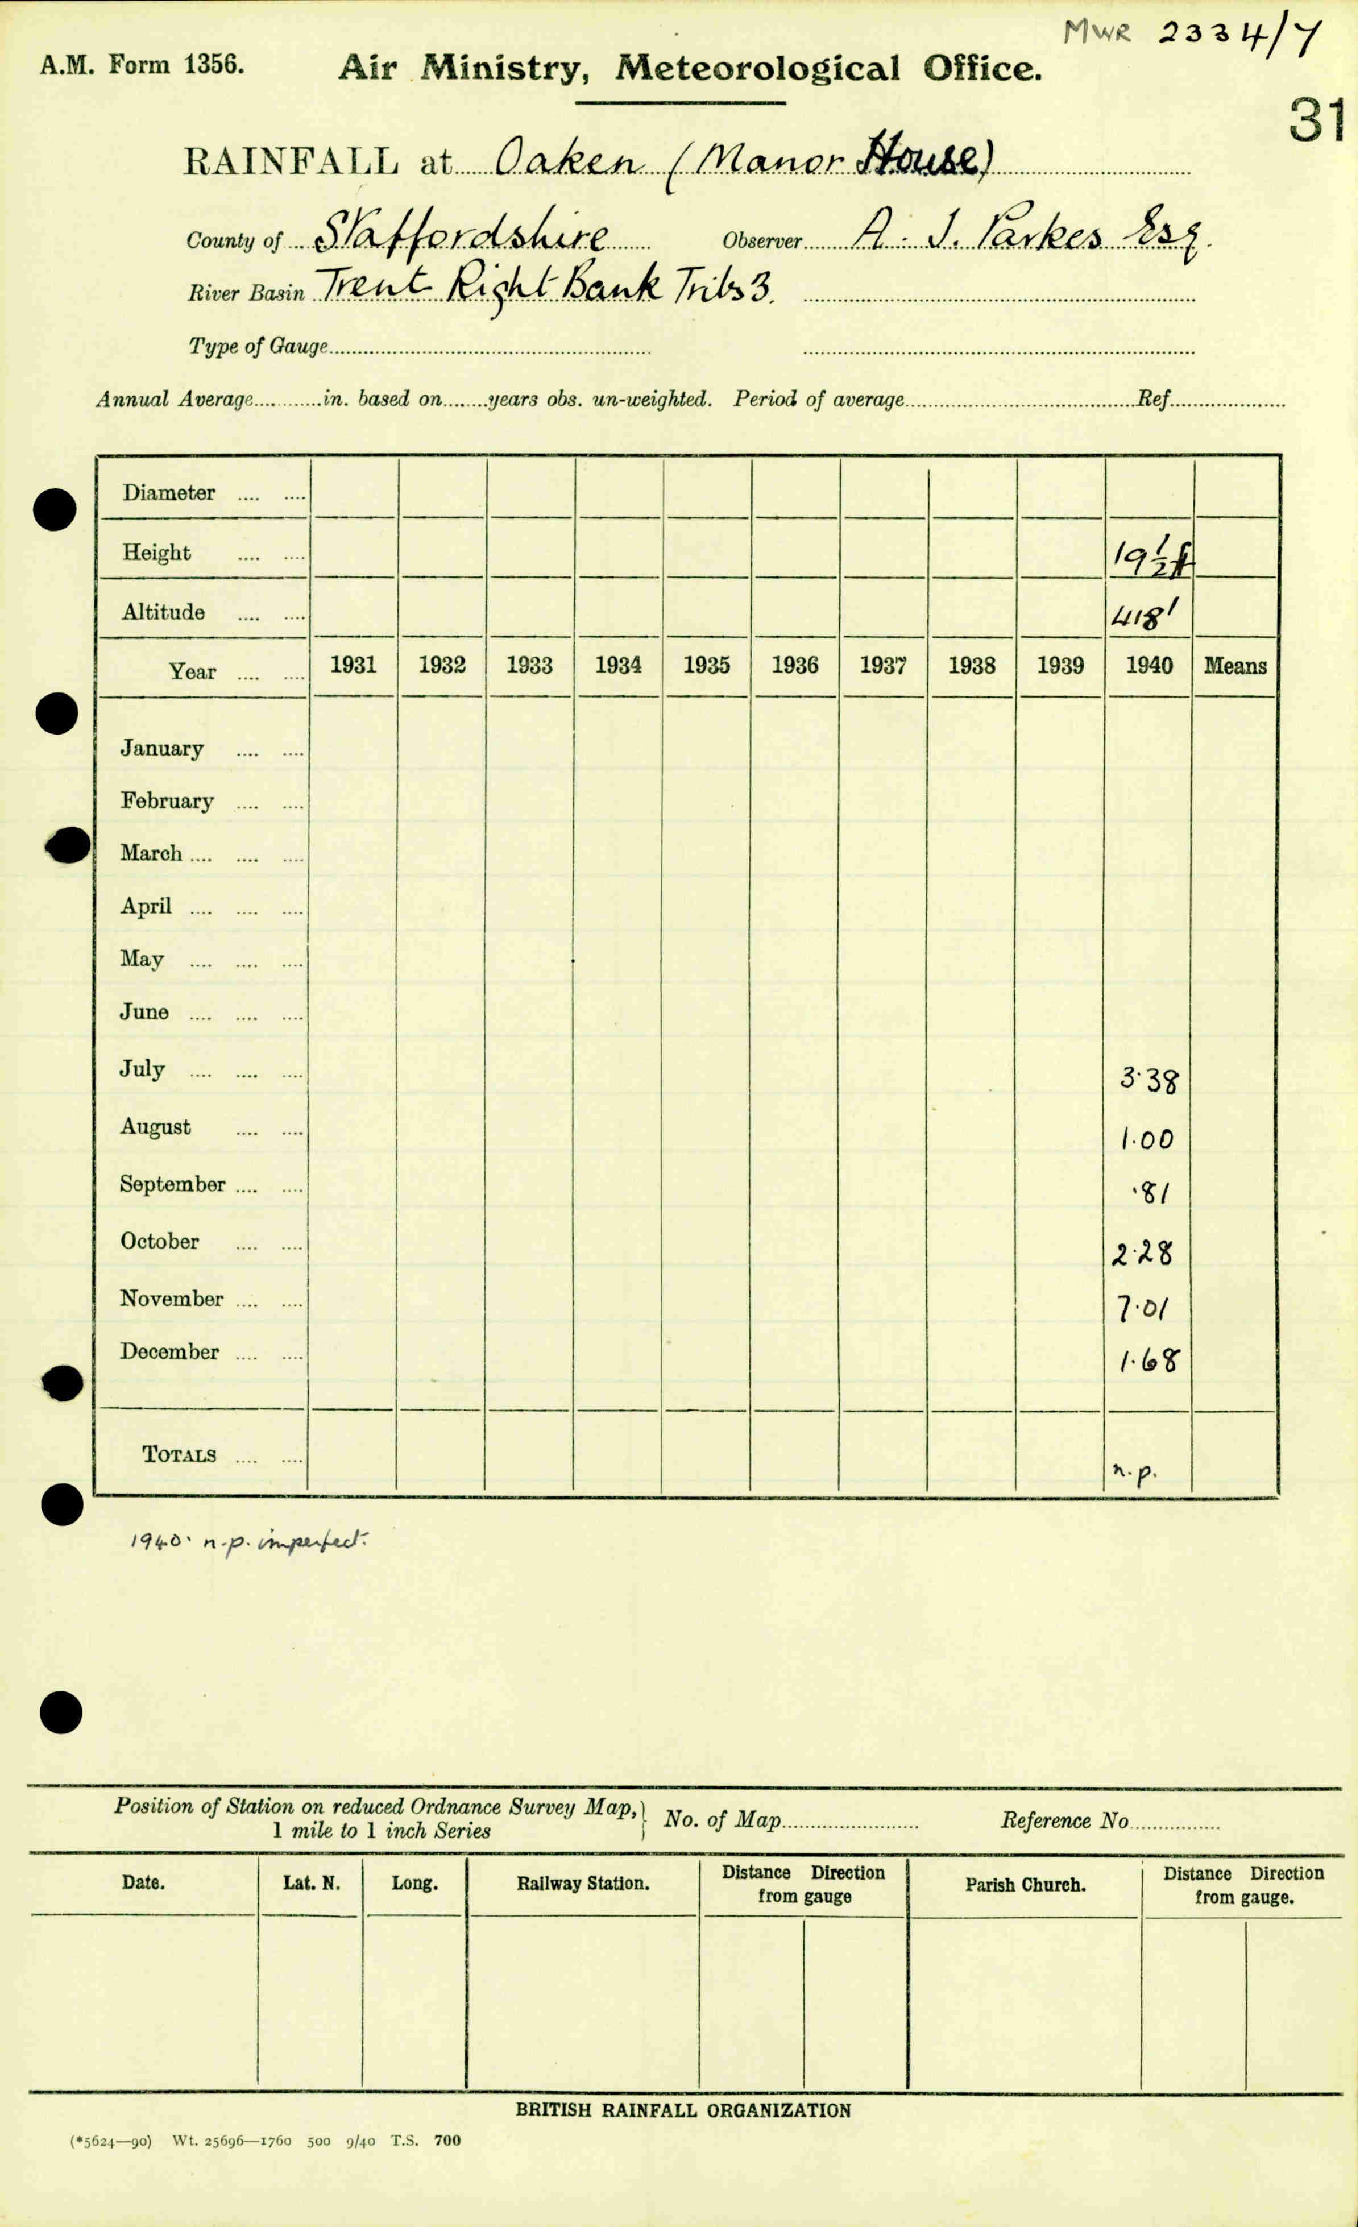 MWR 2334/7
A.M. Form 1356. Air Ministry, Meteorological Office.
31
RAINFALL at Oaken (Manor House)
County of Staffordshire Observer A. J. Parkes Esq.
River Basin Trent Right Bank Tribs 3.
Type of Gauge
Annual Average in. based on years obs. un-weighted. Period of average Ref.
Diameter
Height 19½ ft
Altitude 418'
Year 1931 1932 1933 1934 1935 1936 1937 1938 1939 1940 Means
January
February
March
April
May
June
July 3.38
August 1.00
September .81
October 2.28
November 7.01
December 1.68
TOTALS n.p.
1940. n.p. imperfect.
Position of Station on reduced Ordnance Survey Map, 1 mile to 1 inch Series } No. of Map Reference No
Date. Lat. N. Long. Railway Station. Distance Direction from gauge Parish Church. Distance Direction from gauge.
BRITISH RAINFALL ORGANIZATION
(*5624—90) Wt. 25696—1760 500 9/40 T.S. 700